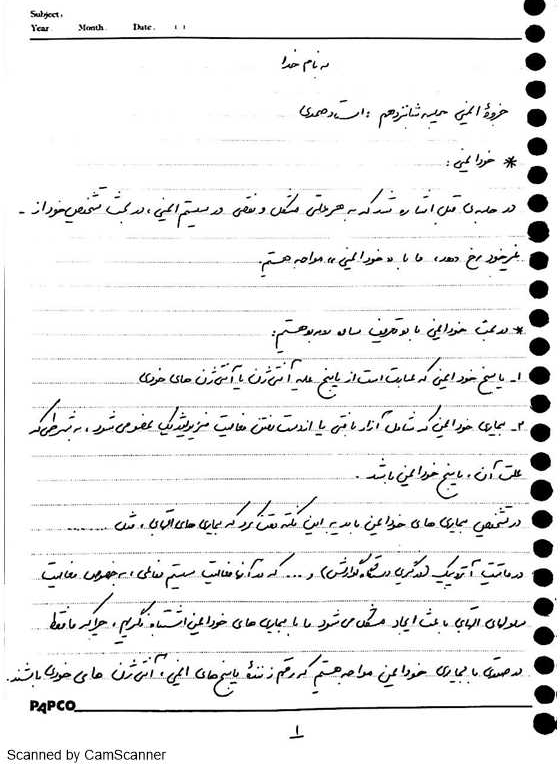 Subject:
Year Month Date
به نام خدا
جزوهٔ ایمنی جلسه شانزدهم : استاد صمدی
* خودایمنی :
در جلسه‌ی قبل اشاره شد که به هر علتی مشکل و نقصی در سیستم ایمنی، در بحث تشخیص خود از -
غیرخود رخ دهد، ما با خودایمنی مواجه هستیم.
* در بحث خودایمنی با دو تعریف ساده روبرو هستیم:
۱- پاسخ خودایمن که عبارت است از پاسخ علیه آنتی ژن یا آنتی ژن های خودی
۲- بیماری خودایمن که شامل آزار بافتی یا از دست رفتن فعالیت فیزیولوژیک عضو می شود، به شرطی که
علت آن، پاسخ خودایمن باشد.
در تشخیص بیماری های خودایمن باید به این نکته دقت کرد که بیماری های التهابی، مثل ........
درماتیت آتوپیک (درگیری دستگاه گوارش) و ... که در آنها فعالیت سیستم دفاعی، به خصوص فعالیت
سلولهای التهابی باعث ایجاد مشکل می شود را با بیماری های خودایمن اشتباه نگیریم، چرا که ما فقط
در صورتی با بیماری خودایمن مواجه هستیم که رقم زنندهٔ پاسخ های ایمنی، آنتی ژن های خودی باشند.
PAPCO
۱
Scanned by CamScanner